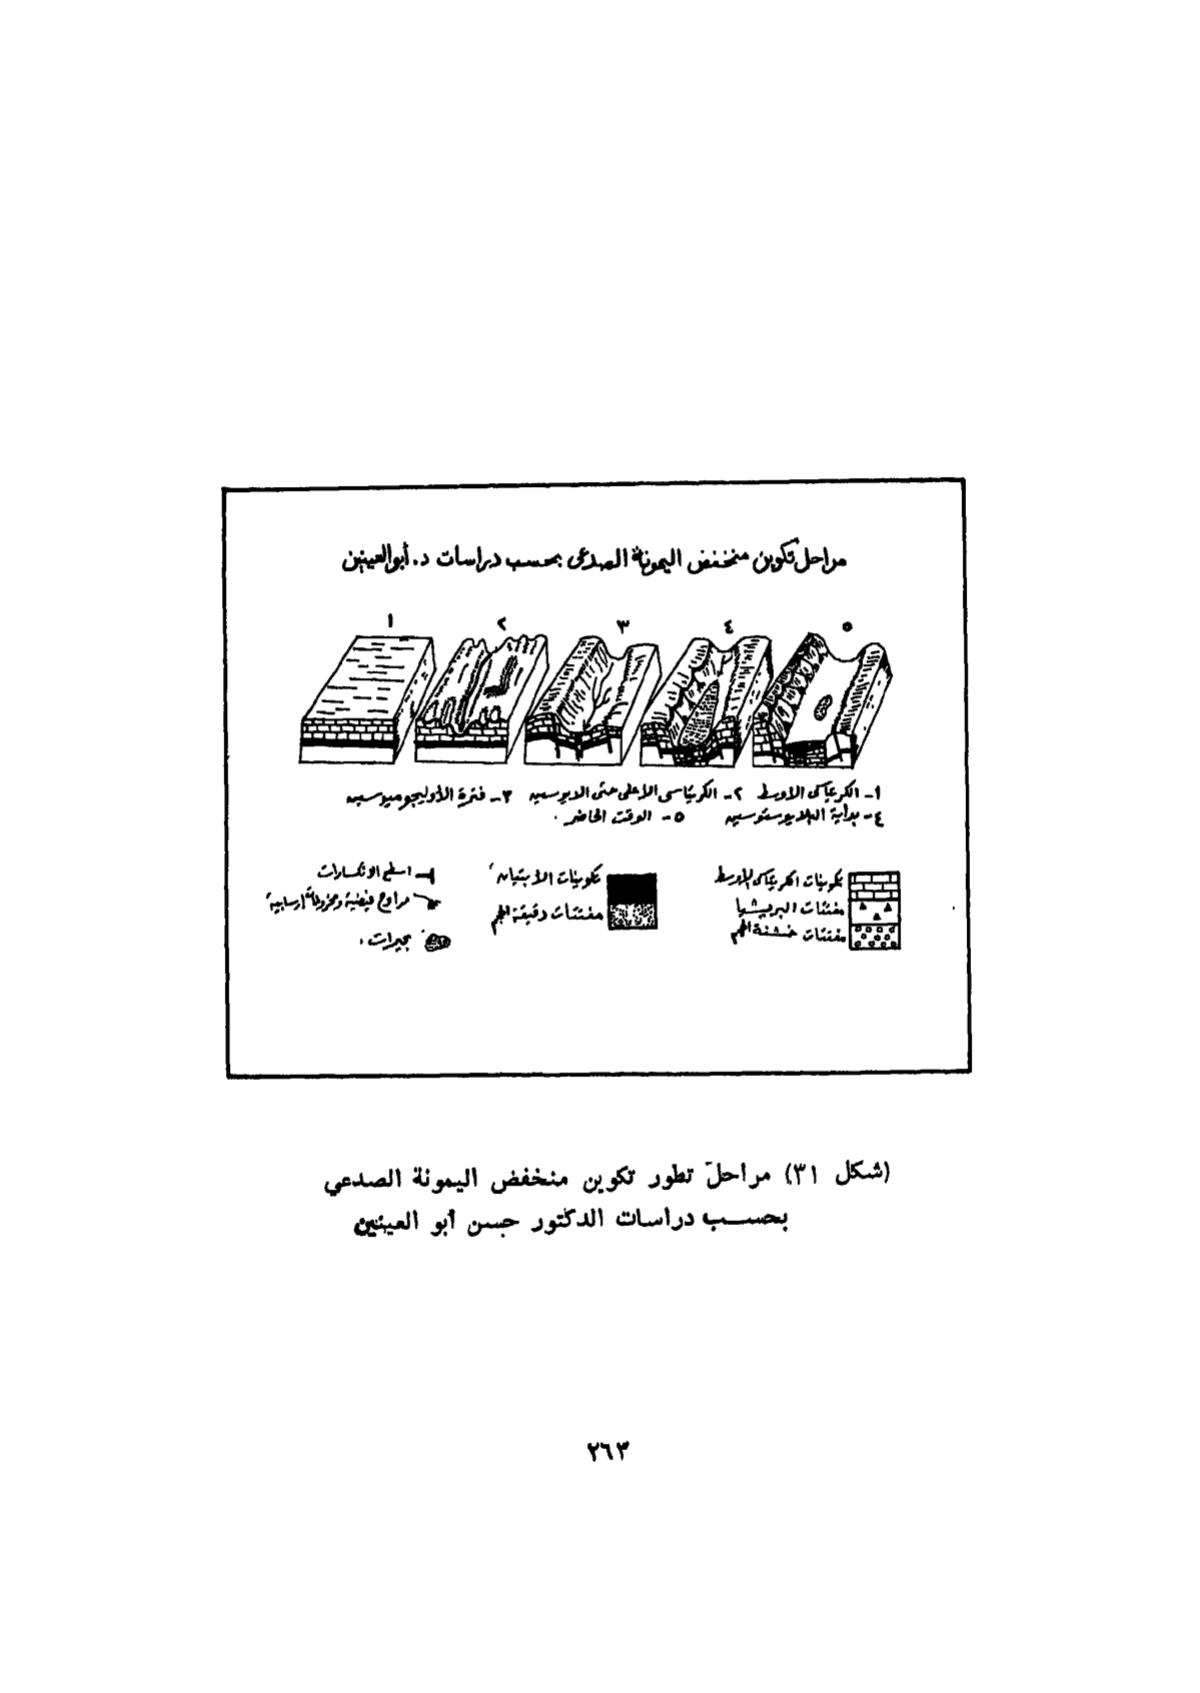 مراحل تكوين منخفض اليمونة الصدعى بحسب دراسات د. أبو العينين
١ ٢ ٣ ٤ ٥
١- الكريتاسى الاوسط ٢- الكريتاسى الاعلى حتى الايوسين ٣- فترة الأوليجوميوسين
٤- بداية البلايوستوسين ٥- الوقت الحاضر .
تكوينات الكريتاسى الاوسط
مفتتات البريشيا
مفتتات خشنة الحجم
تكوينات الأبتيان
مفتتات دقيقة الحجم
اسطح الانكسارات
مراوح فيضية ومخروطات إرسابية
بحيرات .
(شكل ٣١) مراحل تطور تكوين منخفض اليمونة الصدعي
بحسب دراسات الدكتور حسن أبو العينين
٢٦٣